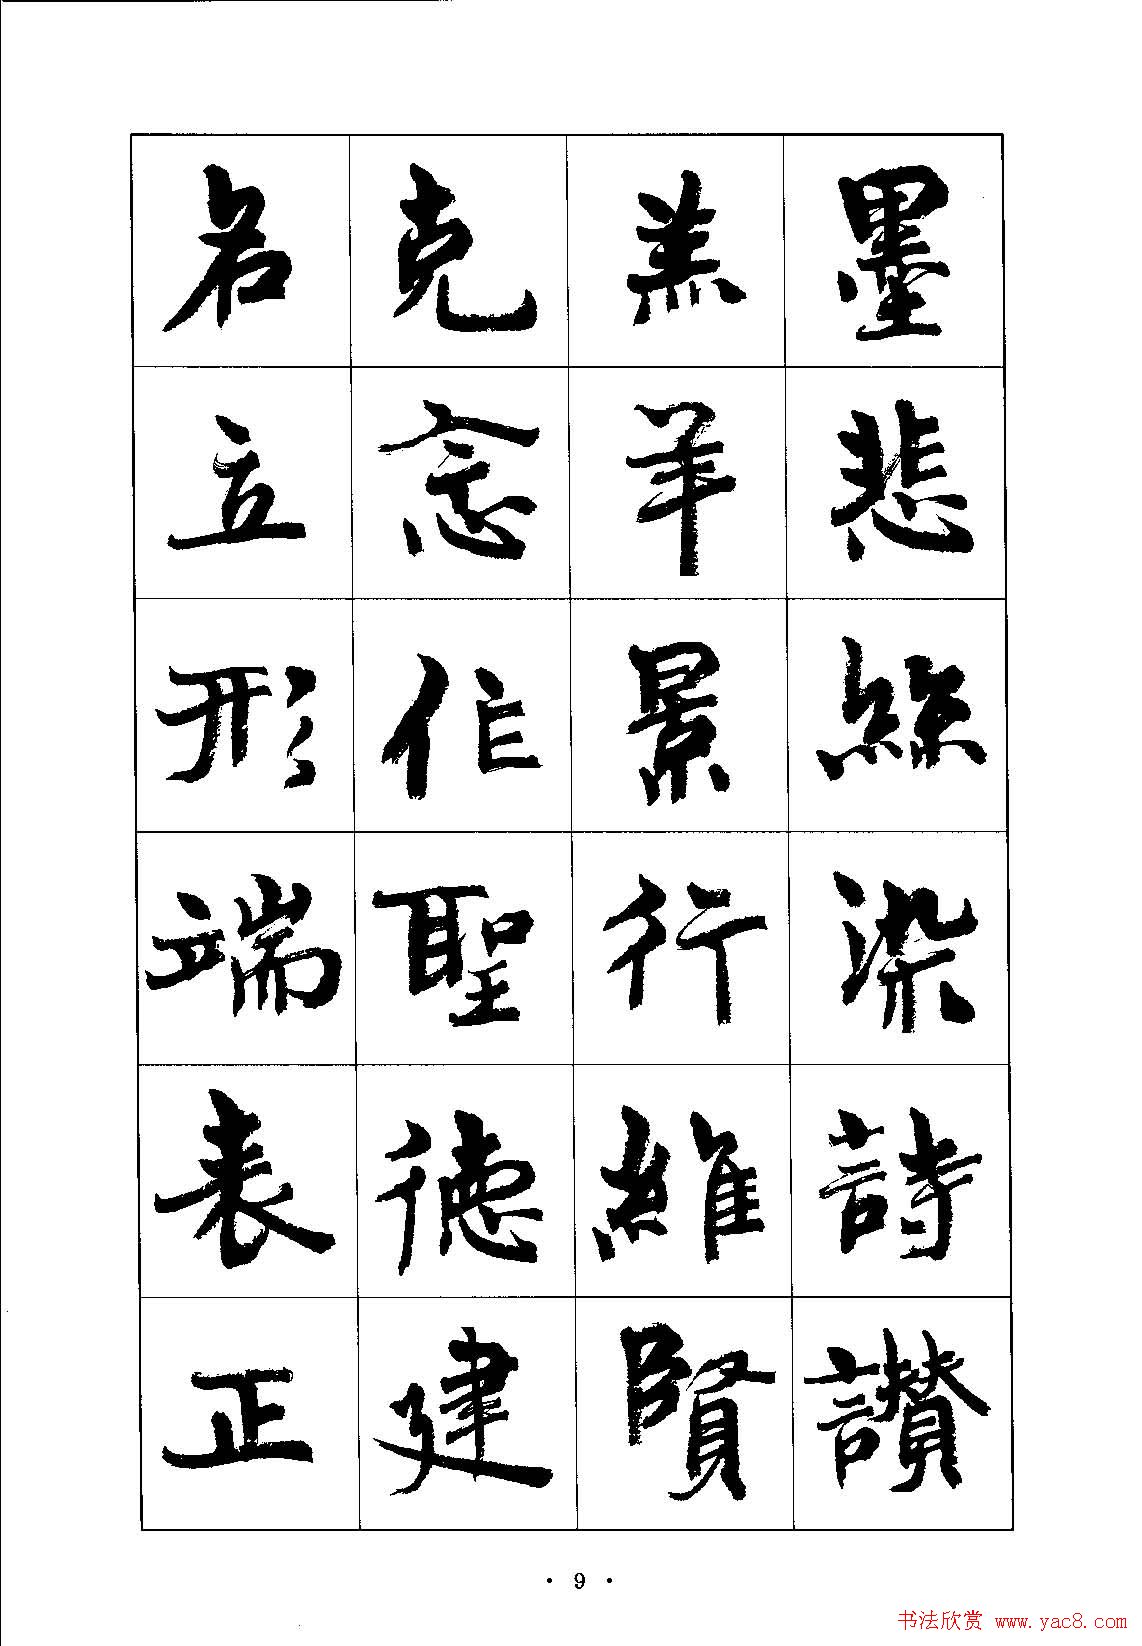 墨悲絲染詩讚
羔羊景行維賢
克念作聖德建
名立形端表正
· 9 ·
书法欣赏 www.yac8.com